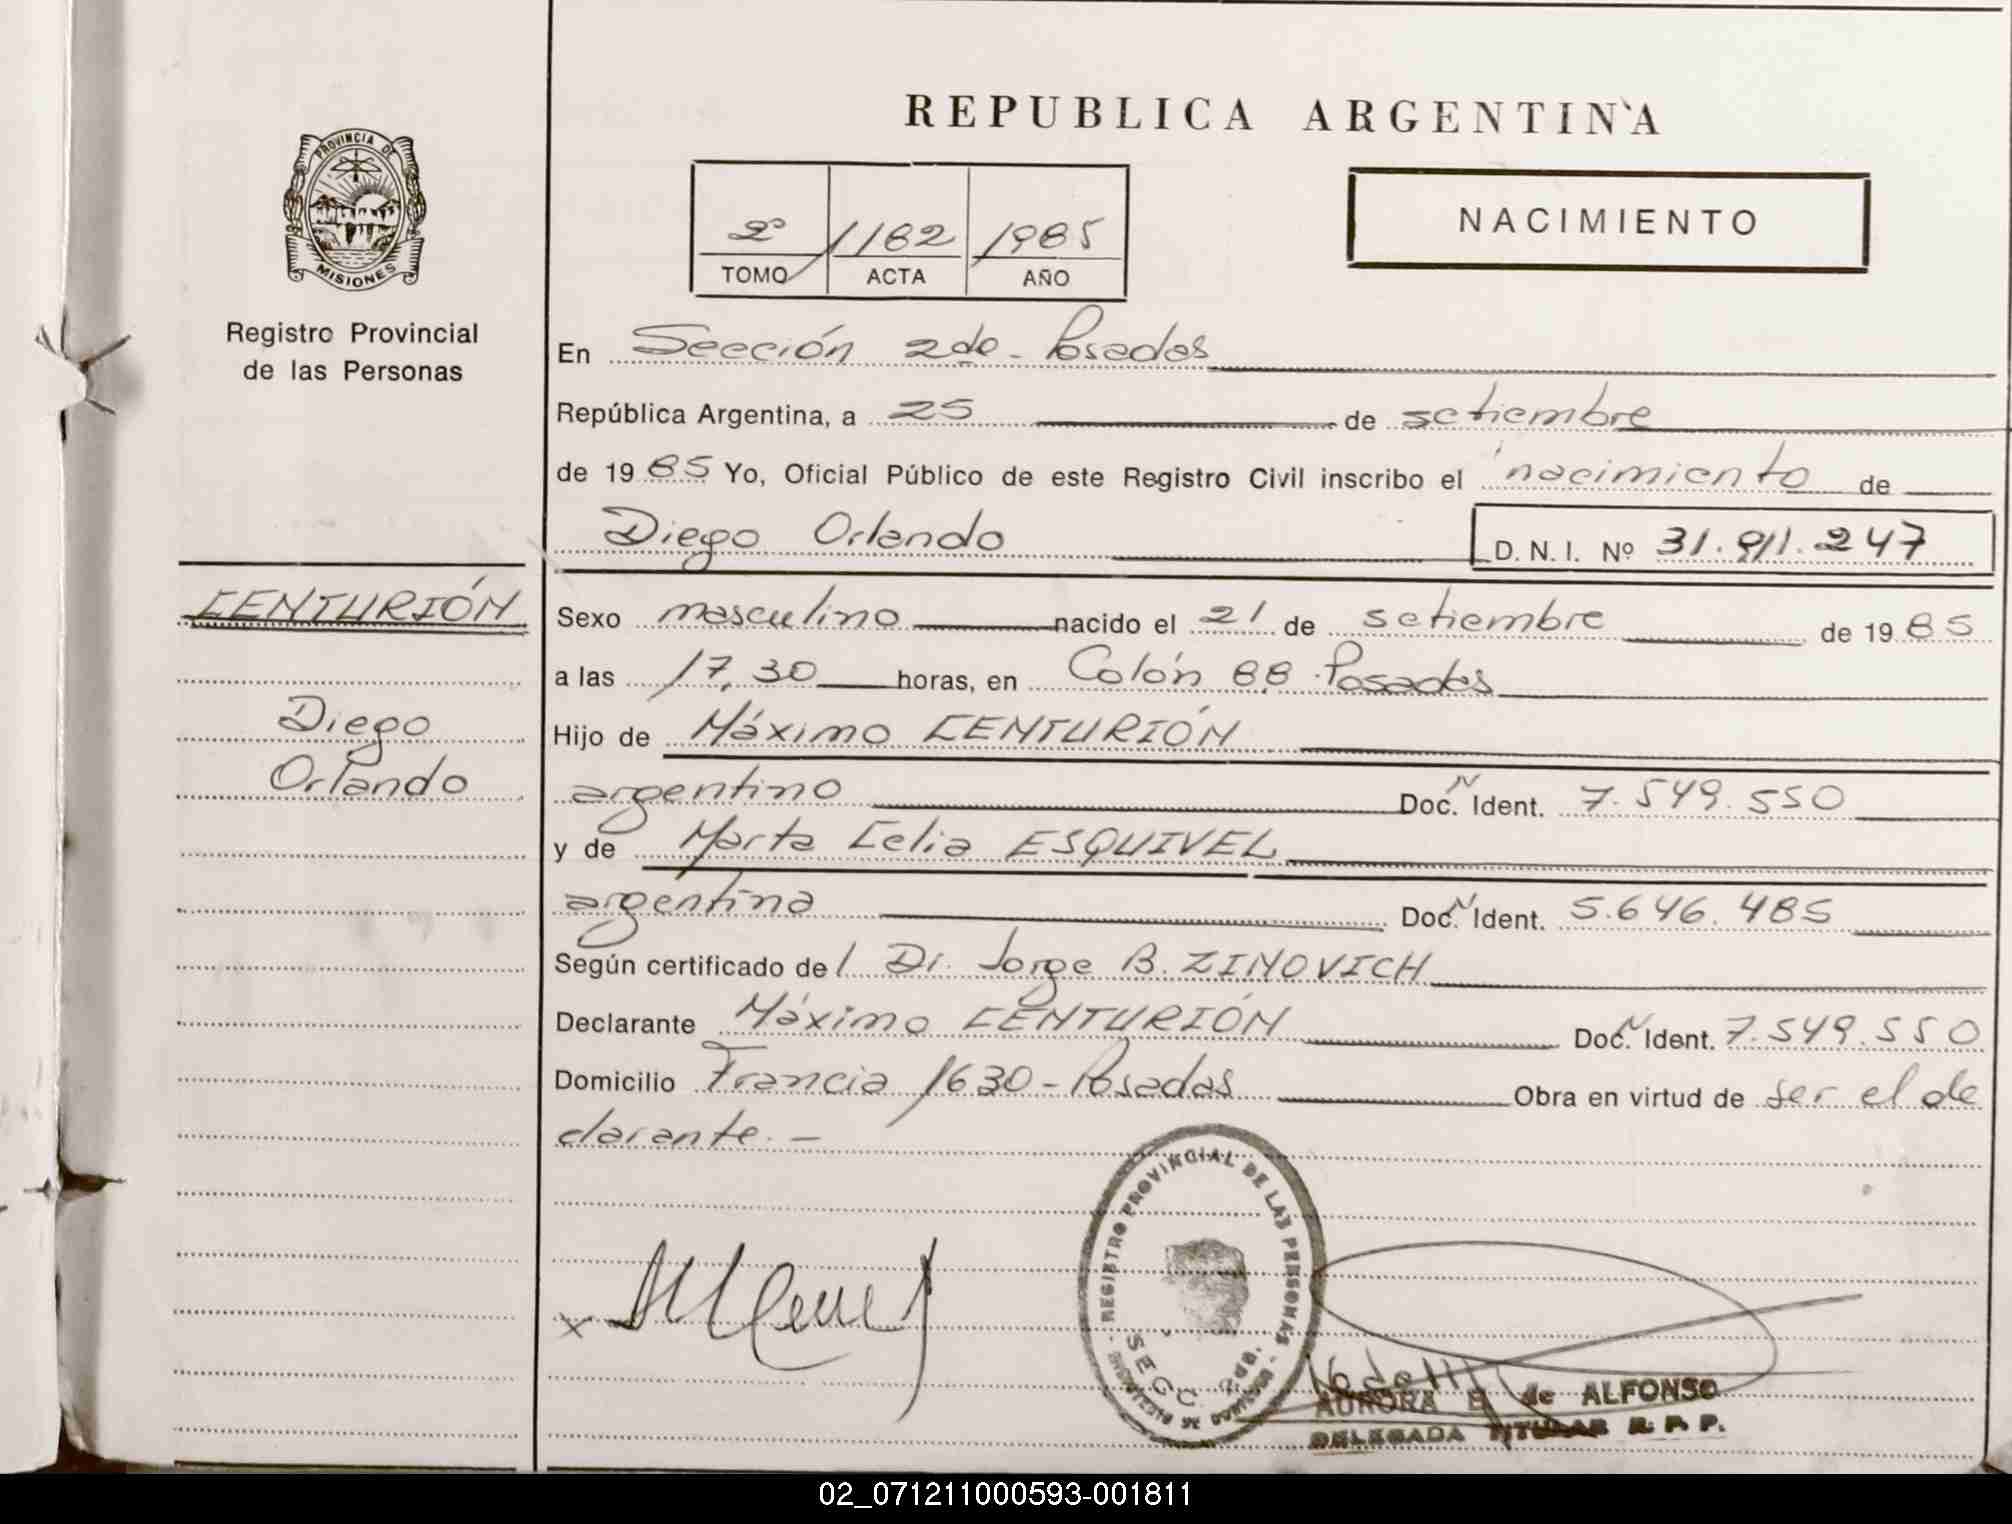 REPUBLICA ARGENTINA
PROVINCIA DE
MISIONES
Registro Provincial
de las Personas
2º 1182 1985
TOMO ACTA AÑO
NACIMIENTO
En Sección 2da - Posadas
República Argentina, a 25 de setiembre
de 1985 Yo, Oficial Público de este Registro Civil inscribo el nacimiento de
Diego Orlando D. N. I. Nº 31.911.247
CENTURIÓN
Diego
Orlando
Sexo masculino nacido el 21 de setiembre de 1985
a las 17,30 horas, en Colón 88 - Posadas
Hijo de Máximo CENTURIÓN
argentino Doc. N Ident. 7.549.550
y de Marta Celia ESQUIVEL
argentina Doc. N Ident. 5.646.485
Según certificado del Dr. Jorge B. ZINOVICH
Declarante Máximo CENTURIÓN Doc. N Ident. 7.549.550
Domicilio Francia 1630 - Posadas Obra en virtud de ser el de
clarante. -
REGISTRO PROVINCIAL DE LAS PERSONAS
SECC. 2da.
AURORA de ALFONSO
DELEGADA TITULAR R. P. P.
02_071211000593-001811